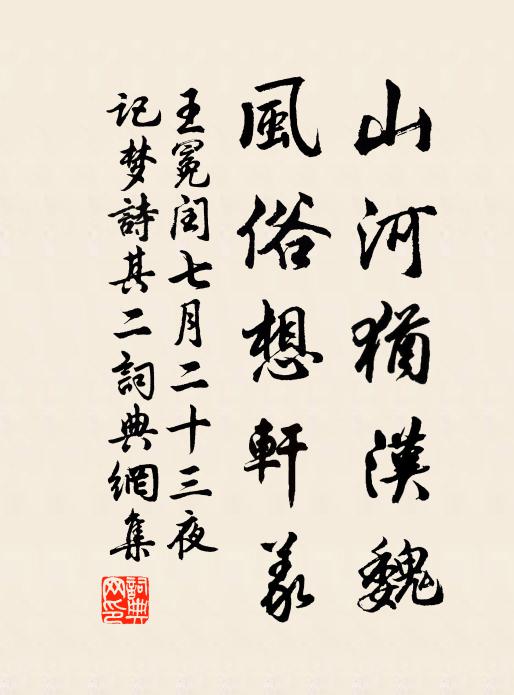 山河猶漢魏
風俗想軒羲
王冕閏七月二十三夜
记梦詩其二詞典網集
詞典网印